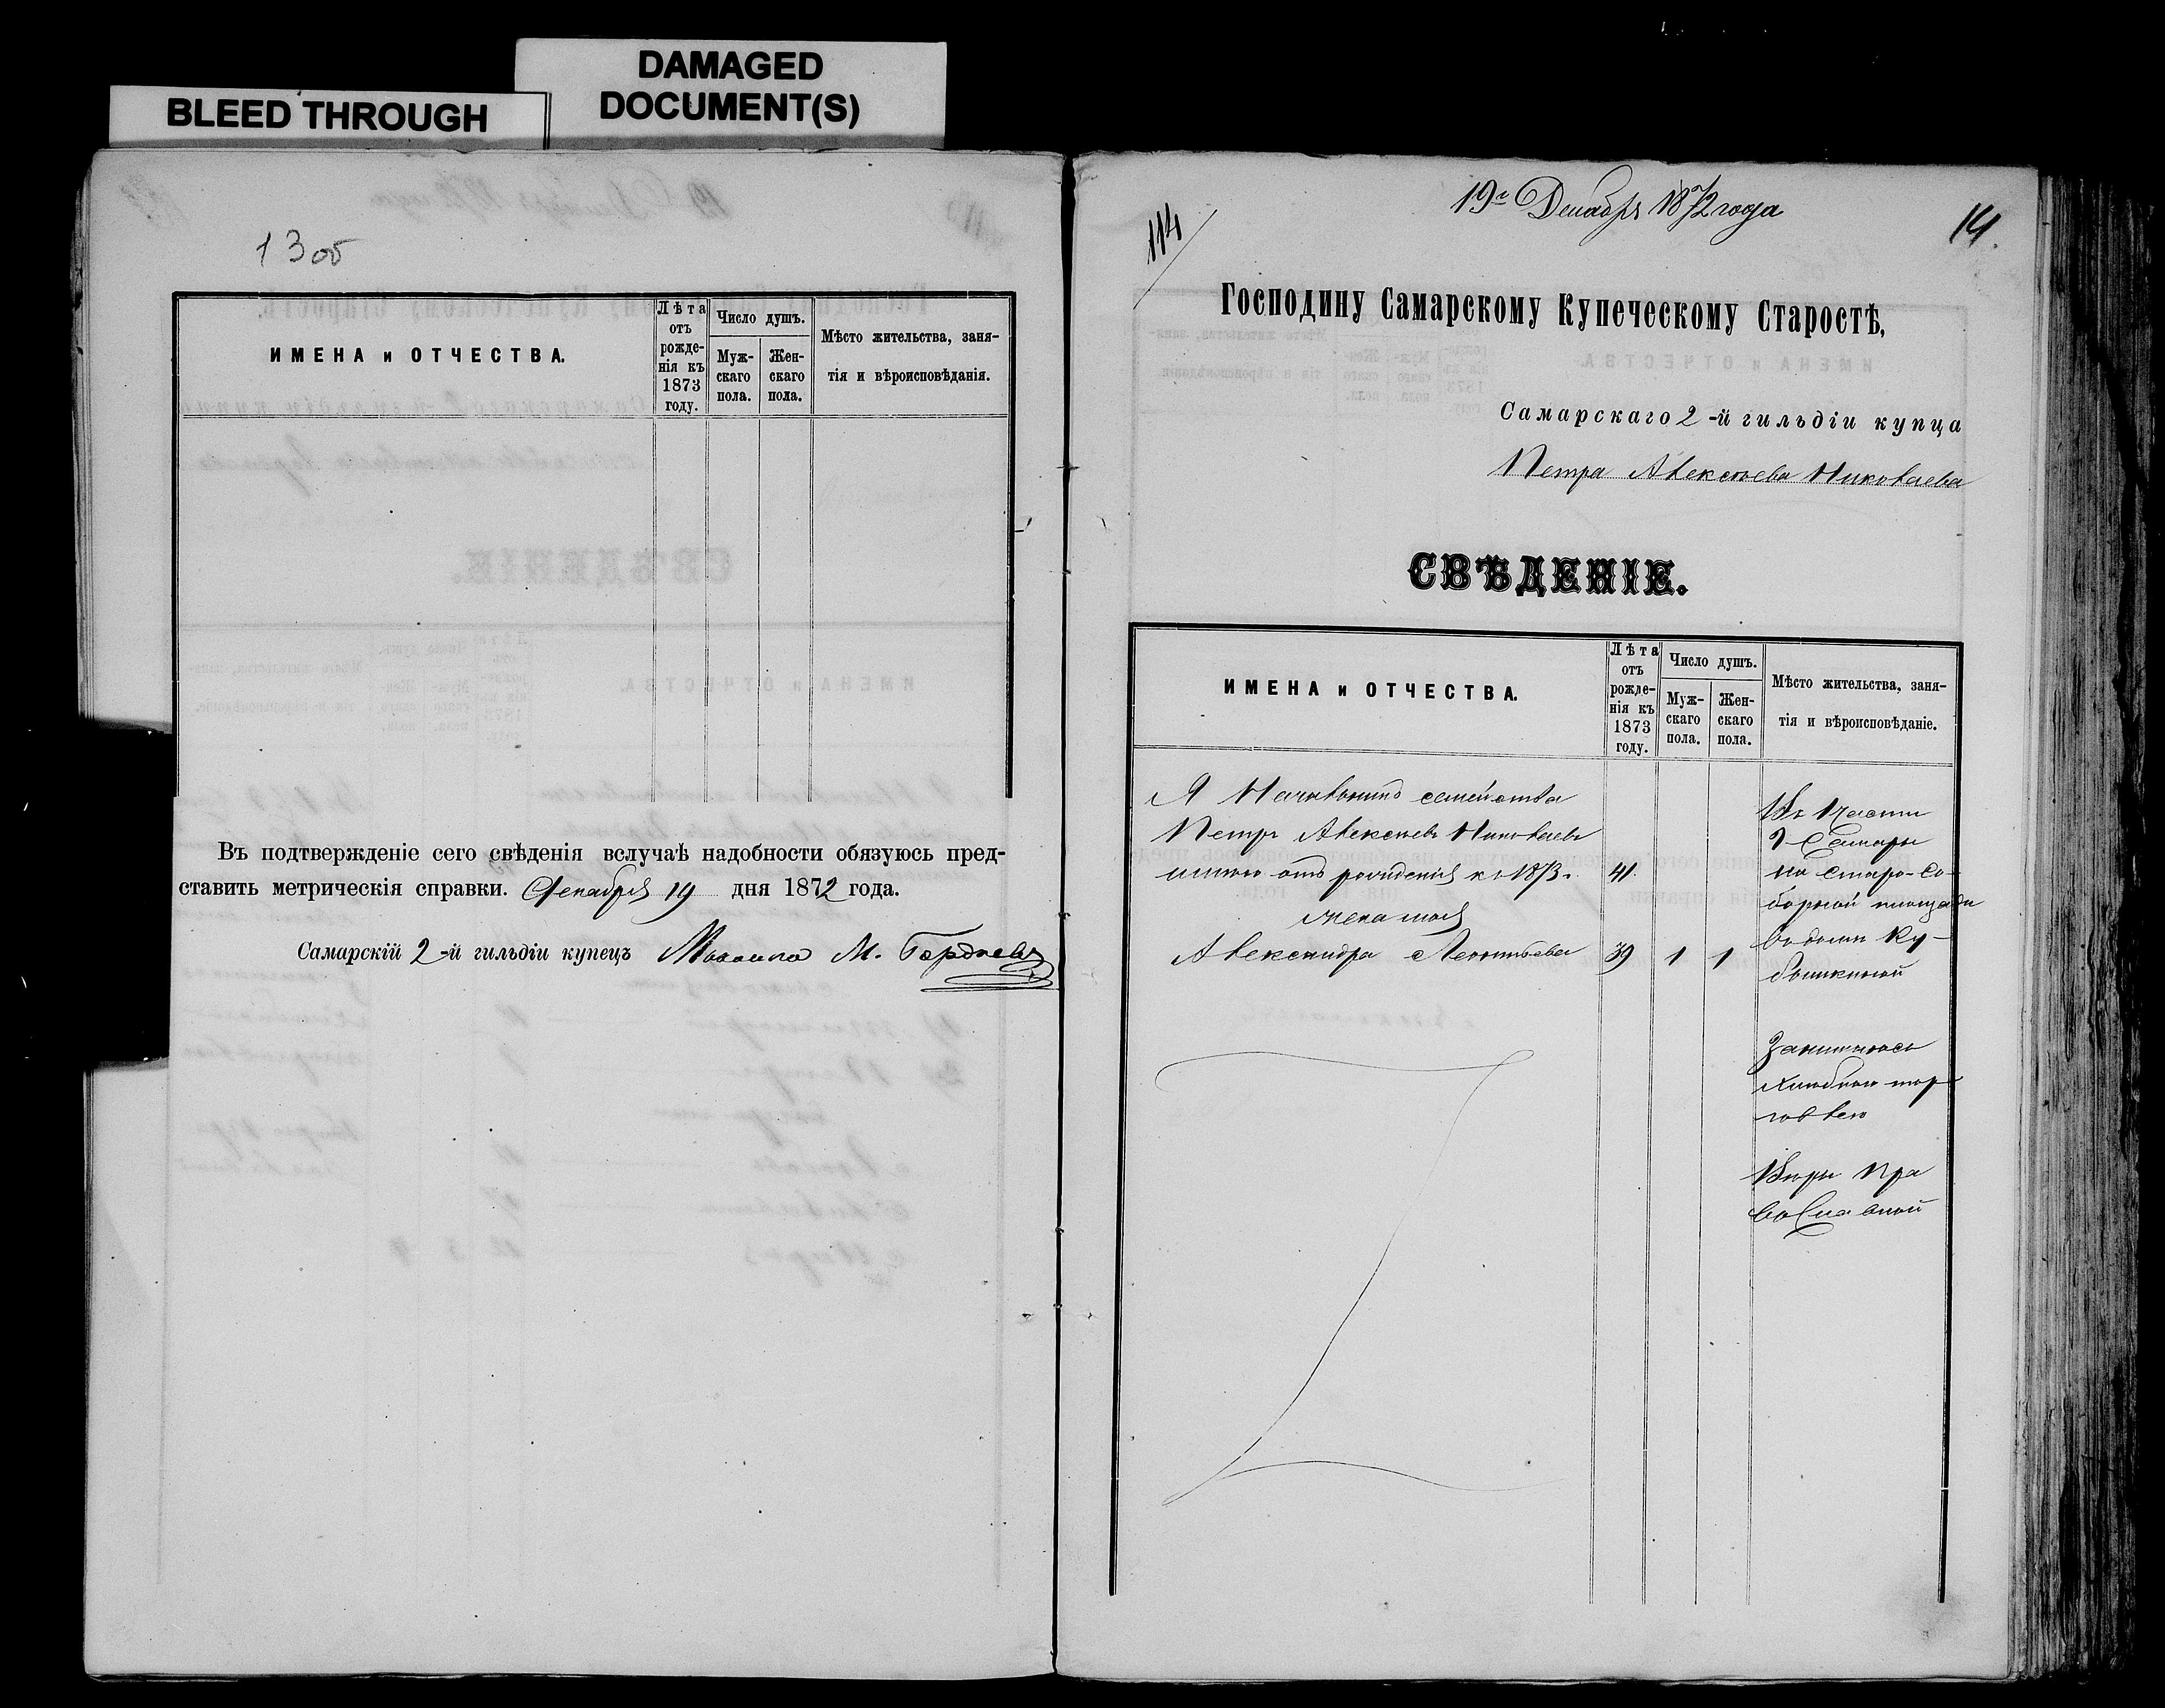 BLEED THROUGH
DAMAGED
DOCUMENT(S)
13 об
ИМЕНА и ОТЧЕСТВА.
Лѣта
отъ
рожде-
нія къ
1873
году.
Число душъ.
Муж-
скаго
пола.
Жен-
скаго
пола.
Мѣсто жительства, заня-
тія и вѣроисповѣданія.
Въ подтвержденіе сего свѣденія вслучаѣ надобности обязуюсь пред-
ставить метрическія справки. Декабря 19 дня 1872 года.
Самарскій 2-й гильдіи купецъ М. Гордѣевъ
114
19го Декабря 1872 года
14.
Господину Самарскому Купеческому Старостѣ,
Самарскаго 2-й гильдіи купца
Петра Алексѣева Николаева
СВѢДЕНІЕ.
ИМЕНА и ОТЧЕСТВА.
Лѣта
отъ
рожде-
нія къ
1873
году.
Число душъ.
Муж-
скаго
пола.
Жен-
скаго
пола.
Мѣсто жительства, заня-
тія и вѣроисповѣданіе.
Я Начальникъ семейства
Петръ Алексѣевъ Николаевъ
имѣю отъ рожденія къ 1873 г. 41
жена моя
Александра Леонтьева 39 1 1
Въ 1 части
г Самары
на старо-со-
борной площади
въ домѣ Ку-
Занимаюсь
хлѣбною тор
говлею
Вѣры пра
вославной